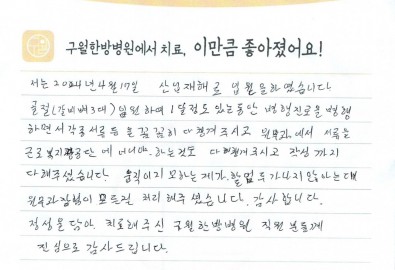 구월한방병원에서 치료, 이만큼 좋아졌어요!
저는 2024년 4월 17일 산업재해로 입원을 하였습니다
골절(갈비뼈3대) 입원하며 1달정도 있는동안 병행진료를 병행
하면서 각종서류등을 꼼꼼히 다 챙겨주시고 원무과에서 서류를
근로복지공단에 내야 하는것도 다 해주시고 작성까지
다해주셨습니다. 움직이지 못하는 제가 할 없는데
원무과 모든걸 처리해 주셨습니다. 감사합니다.
정성을 담아 치료해주신 구월한방병원 직원분들께
진심으로 감사드립니다.